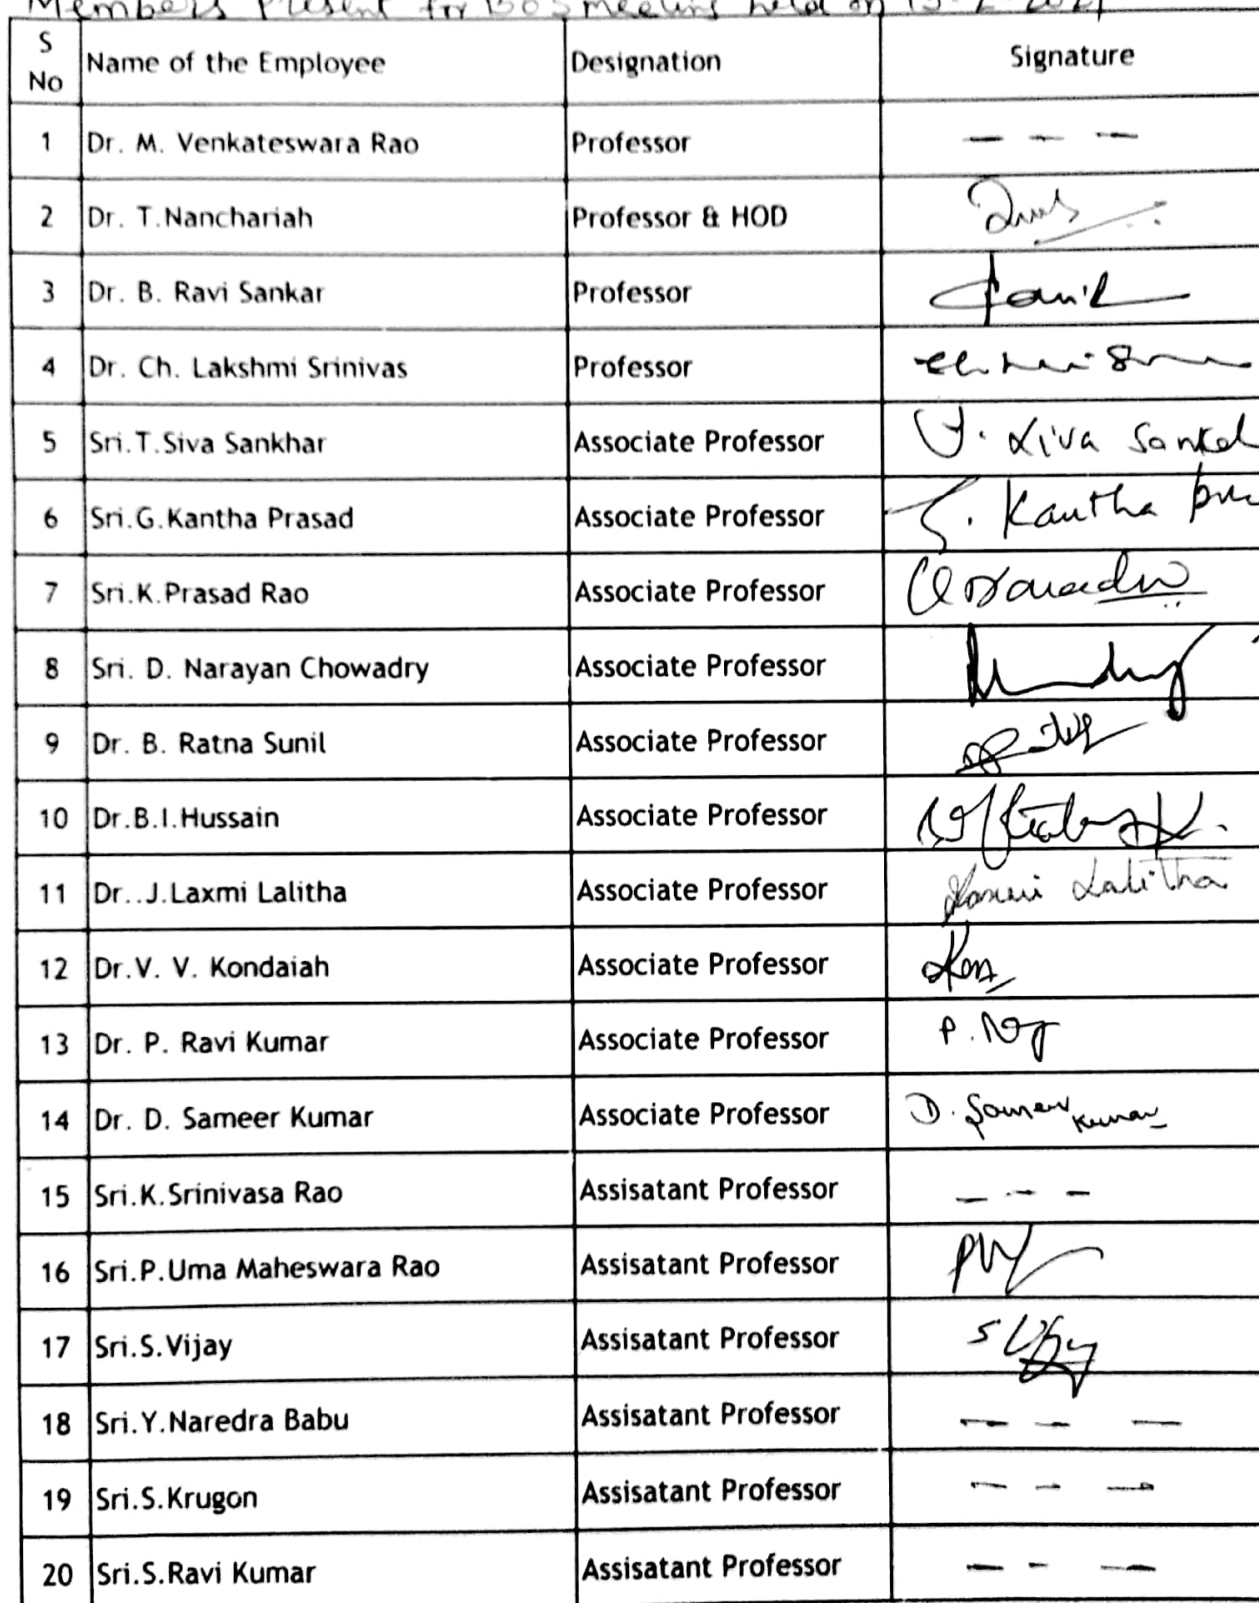 Members Present for BOS meeting held on
S No Name of the Employee Designation Signature
1 Dr. M. Venkateswara Rao Professor - - -
2 Dr. T.Nanchariah Professor & HOD
3 Dr. B. Ravi Sankar Professor
4 Dr. Ch. Lakshmi Srinivas Professor
5 Sri.T.Siva Sankhar Associate Professor T. Siva
6 Sri.G.Kantha Prasad Associate Professor G. Kantha
7 Sri.K.Prasad Rao Associate Professor
8 Sri. D. Narayan Chowadry Associate Professor
9 Dr. B. Ratna Sunil Associate Professor
10 Dr.B.I.Hussain Associate Professor
11 Dr..J.Laxmi Lalitha Associate Professor Laxmi Lalitha
12 Dr.V. V. Kondaiah Associate Professor
13 Dr. P. Ravi Kumar Associate Professor
14 Dr. D. Sameer Kumar Associate Professor D. Sameer Kumar
15 Sri.K.Srinivasa Rao Assisatant Professor - - -
16 Sri.P.Uma Maheswara Rao Assisatant Professor
17 Sri.S.Vijay Assisatant Professor
18 Sri.Y.Naredra Babu Assisatant Professor - - -
19 Sri.S.Krugon Assisatant Professor - - -
20 Sri.S.Ravi Kumar Assisatant Professor - - -